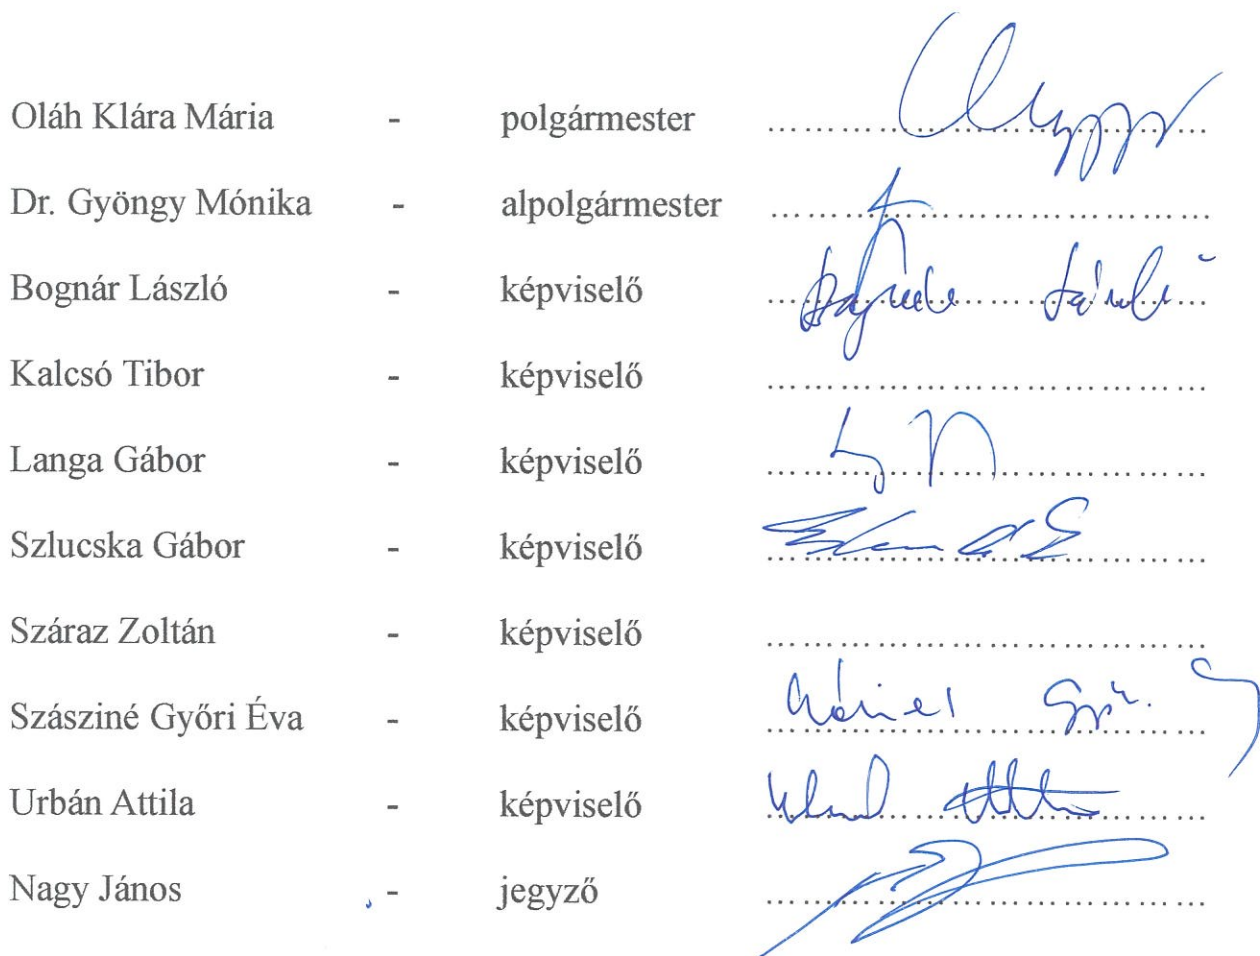 Oláh Klára Mária - polgármester ........................................
Dr. Gyöngy Mónika - alpolgármester ........................................
Bognár László - képviselő ........................................
Kalcsó Tibor - képviselő ........................................
Langa Gábor - képviselő ........................................
Szlucska Gábor - képviselő ........................................
Száraz Zoltán - képviselő ........................................
Szásziné Győri Éva - képviselő ........................................
Urbán Attila - képviselő ........................................
Nagy János - jegyző ........................................